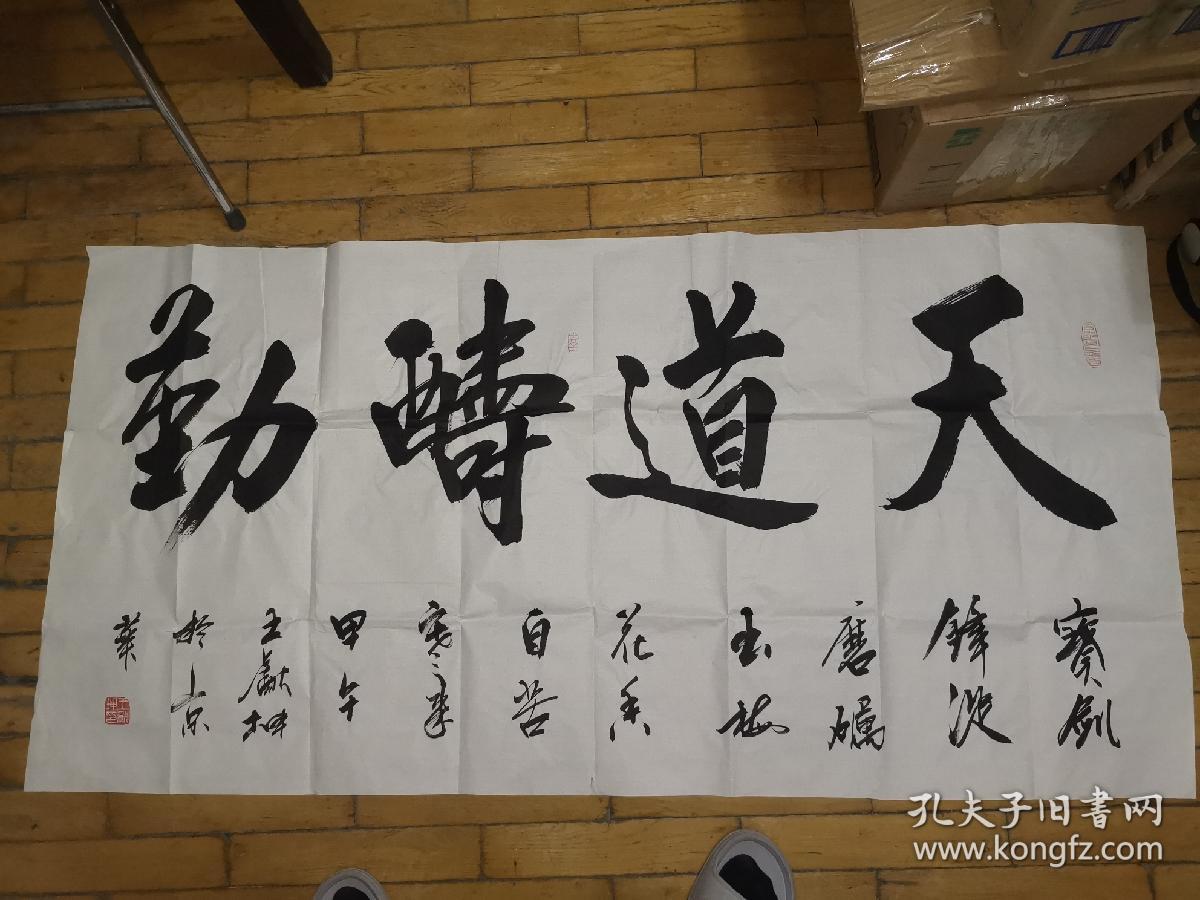 天道醻勤
寶劍
鋒從
磨礪
出梅
花香
自苦
寒來
甲午
王獻坤
於京
華
孔夫子旧书网
www.kongfz.com